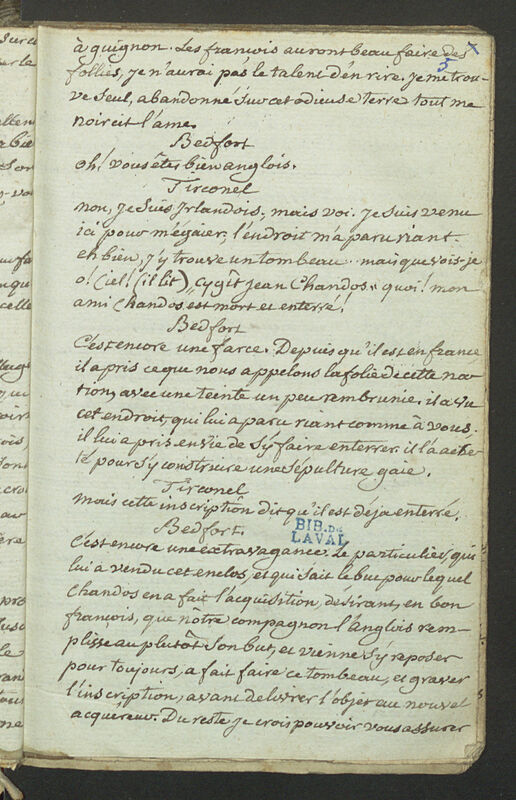 à guignon. Les françois auront beau faire des
5
follies, je n'aurai pas le talent d'en rire. je me trou-
ve seul, abandonné sur cet odieuse terre tout me
noircit l'ame.
Bedfort
oh! vous êtes bien anglois.
Tirconel
non, je suis Irlandois; mais voi. je suis venu
ici pour m'égaier; l'endroit m'a paru riant.
eh bien, j'y trouve un tombeau. mais que vois-je
o! Ciel! (il lit) „ cy gît jean Chandos „ quoi! mon
ami Chandos est mort et enterré!
Bedfort
C'est encore une farce. Depuis qu'il est en france
il a pris ce que nous appelons la folie de cette na-
tion, avec une teinte un peu rembrunie. il a vu
cet endroit, qui lui a paru riant comme à vous.
il lui a pris envie de s'y faire enterrer. il l'a ache-
té pour s'y construire une sépulture gaie.
Tirconel
mais cette inscription dit qu'il est deja enterré.
Bedfort.
BIB. DE
LAVAL
C'est encore une extravagance. Le particulier, qui
lui a vendu cet enclos, et qui sait le but pour lequel
Chandos en a fait l'acquisition, désirant, en bon
françois, que nôtre compagnon l'anglois rem-
plisse au plutôt son but, et vienne s'y reposer
pour toujours, a fait faire ce tombeau, et graver
l'inscription, avant de livrer l'objet au nouvel
acquéreur. Du reste je crois pouvoir vous assurer